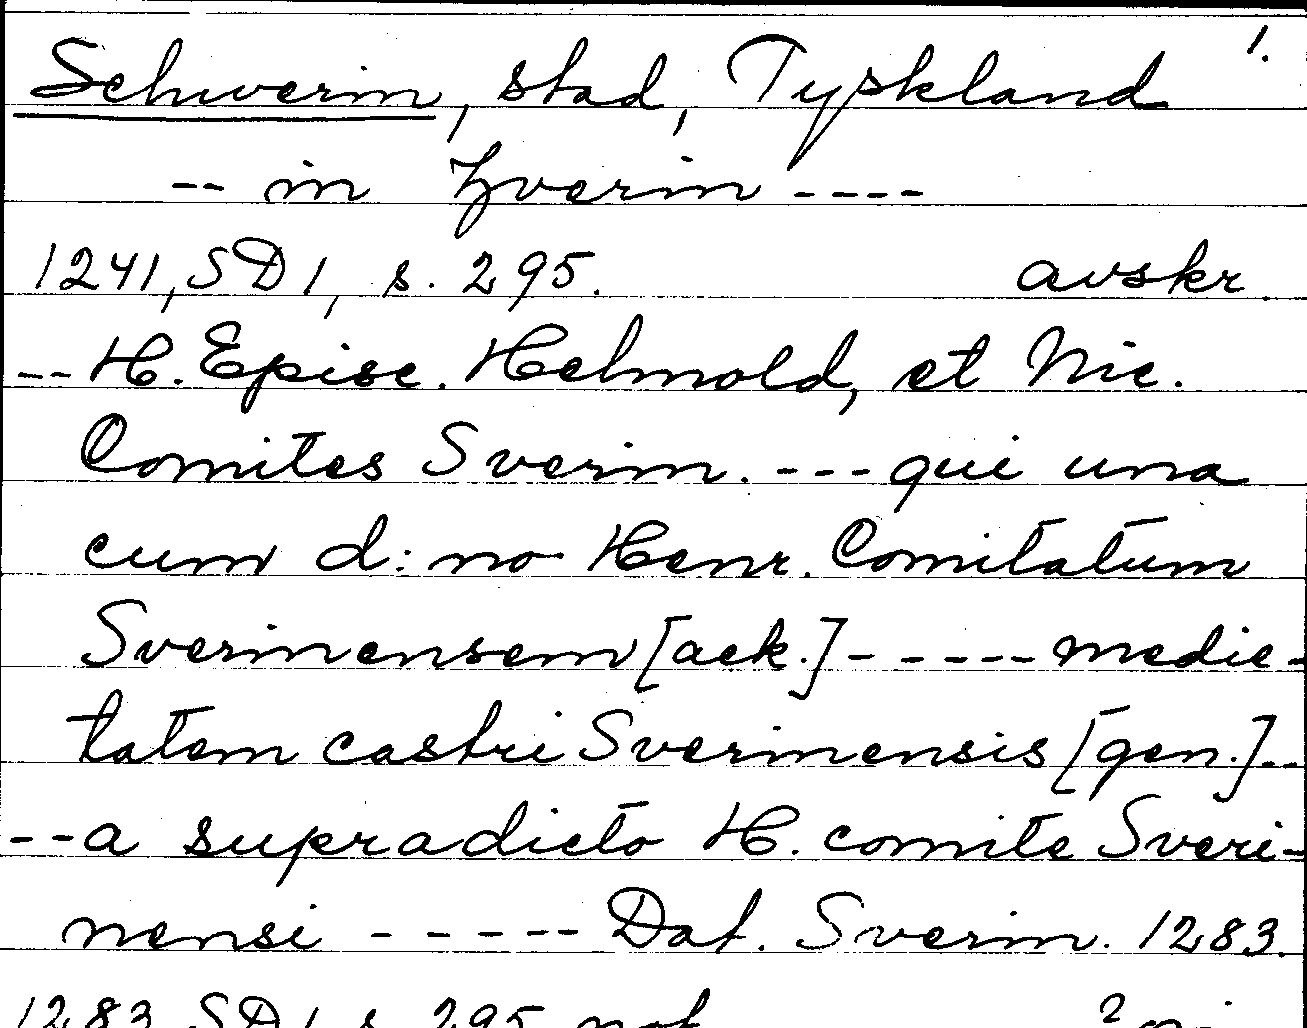 1.
Schwerin, stad, Tyskland
-- in Zverin ----
1241, SD 1, s. 295. avskr.
-- H. Episc. Helmold, et Nic.
Comites Sverin. --- qui una
cum d:no Henr. Comitatum
Sverinensem [ack.] - ---- medie-
tatem castri Sverinensis [gen.] --
-- a supradicto H. comite Sveri-
nensi ----- Dat. Sverin. 1283.
1283 SD 1 s. 295 not